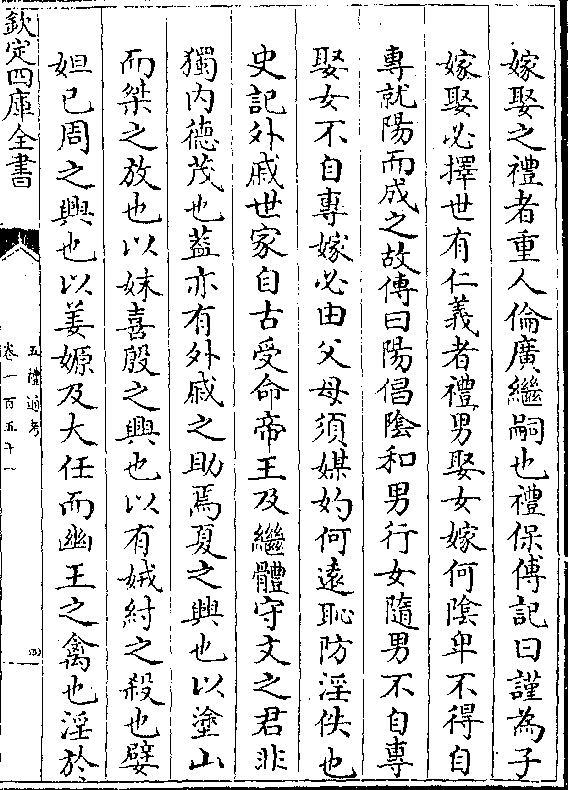 嫁娶之禮者重人倫廣繼嗣也禮保傅記曰謹為子
嫁娶必擇世有仁義者禮男娶女嫁何陰卑不得自
專就陽而成之故傳曰陽倡陰和男行女隨男不自專
娶女不自專嫁必由父母須媒妁何遠恥防淫佚也
史記外戚世家自古受命帝王及繼體守文之君非
獨內德茂也葢亦有外戚之助焉夏之興也以塗山
而桀之放也以妹喜殷之興也以有娀紂之殺也嬖
妲己周之興也以姜嫄及大任而幽王之禽也淫於
欽定四庫全書
五禮通考
卷一百五十一
四